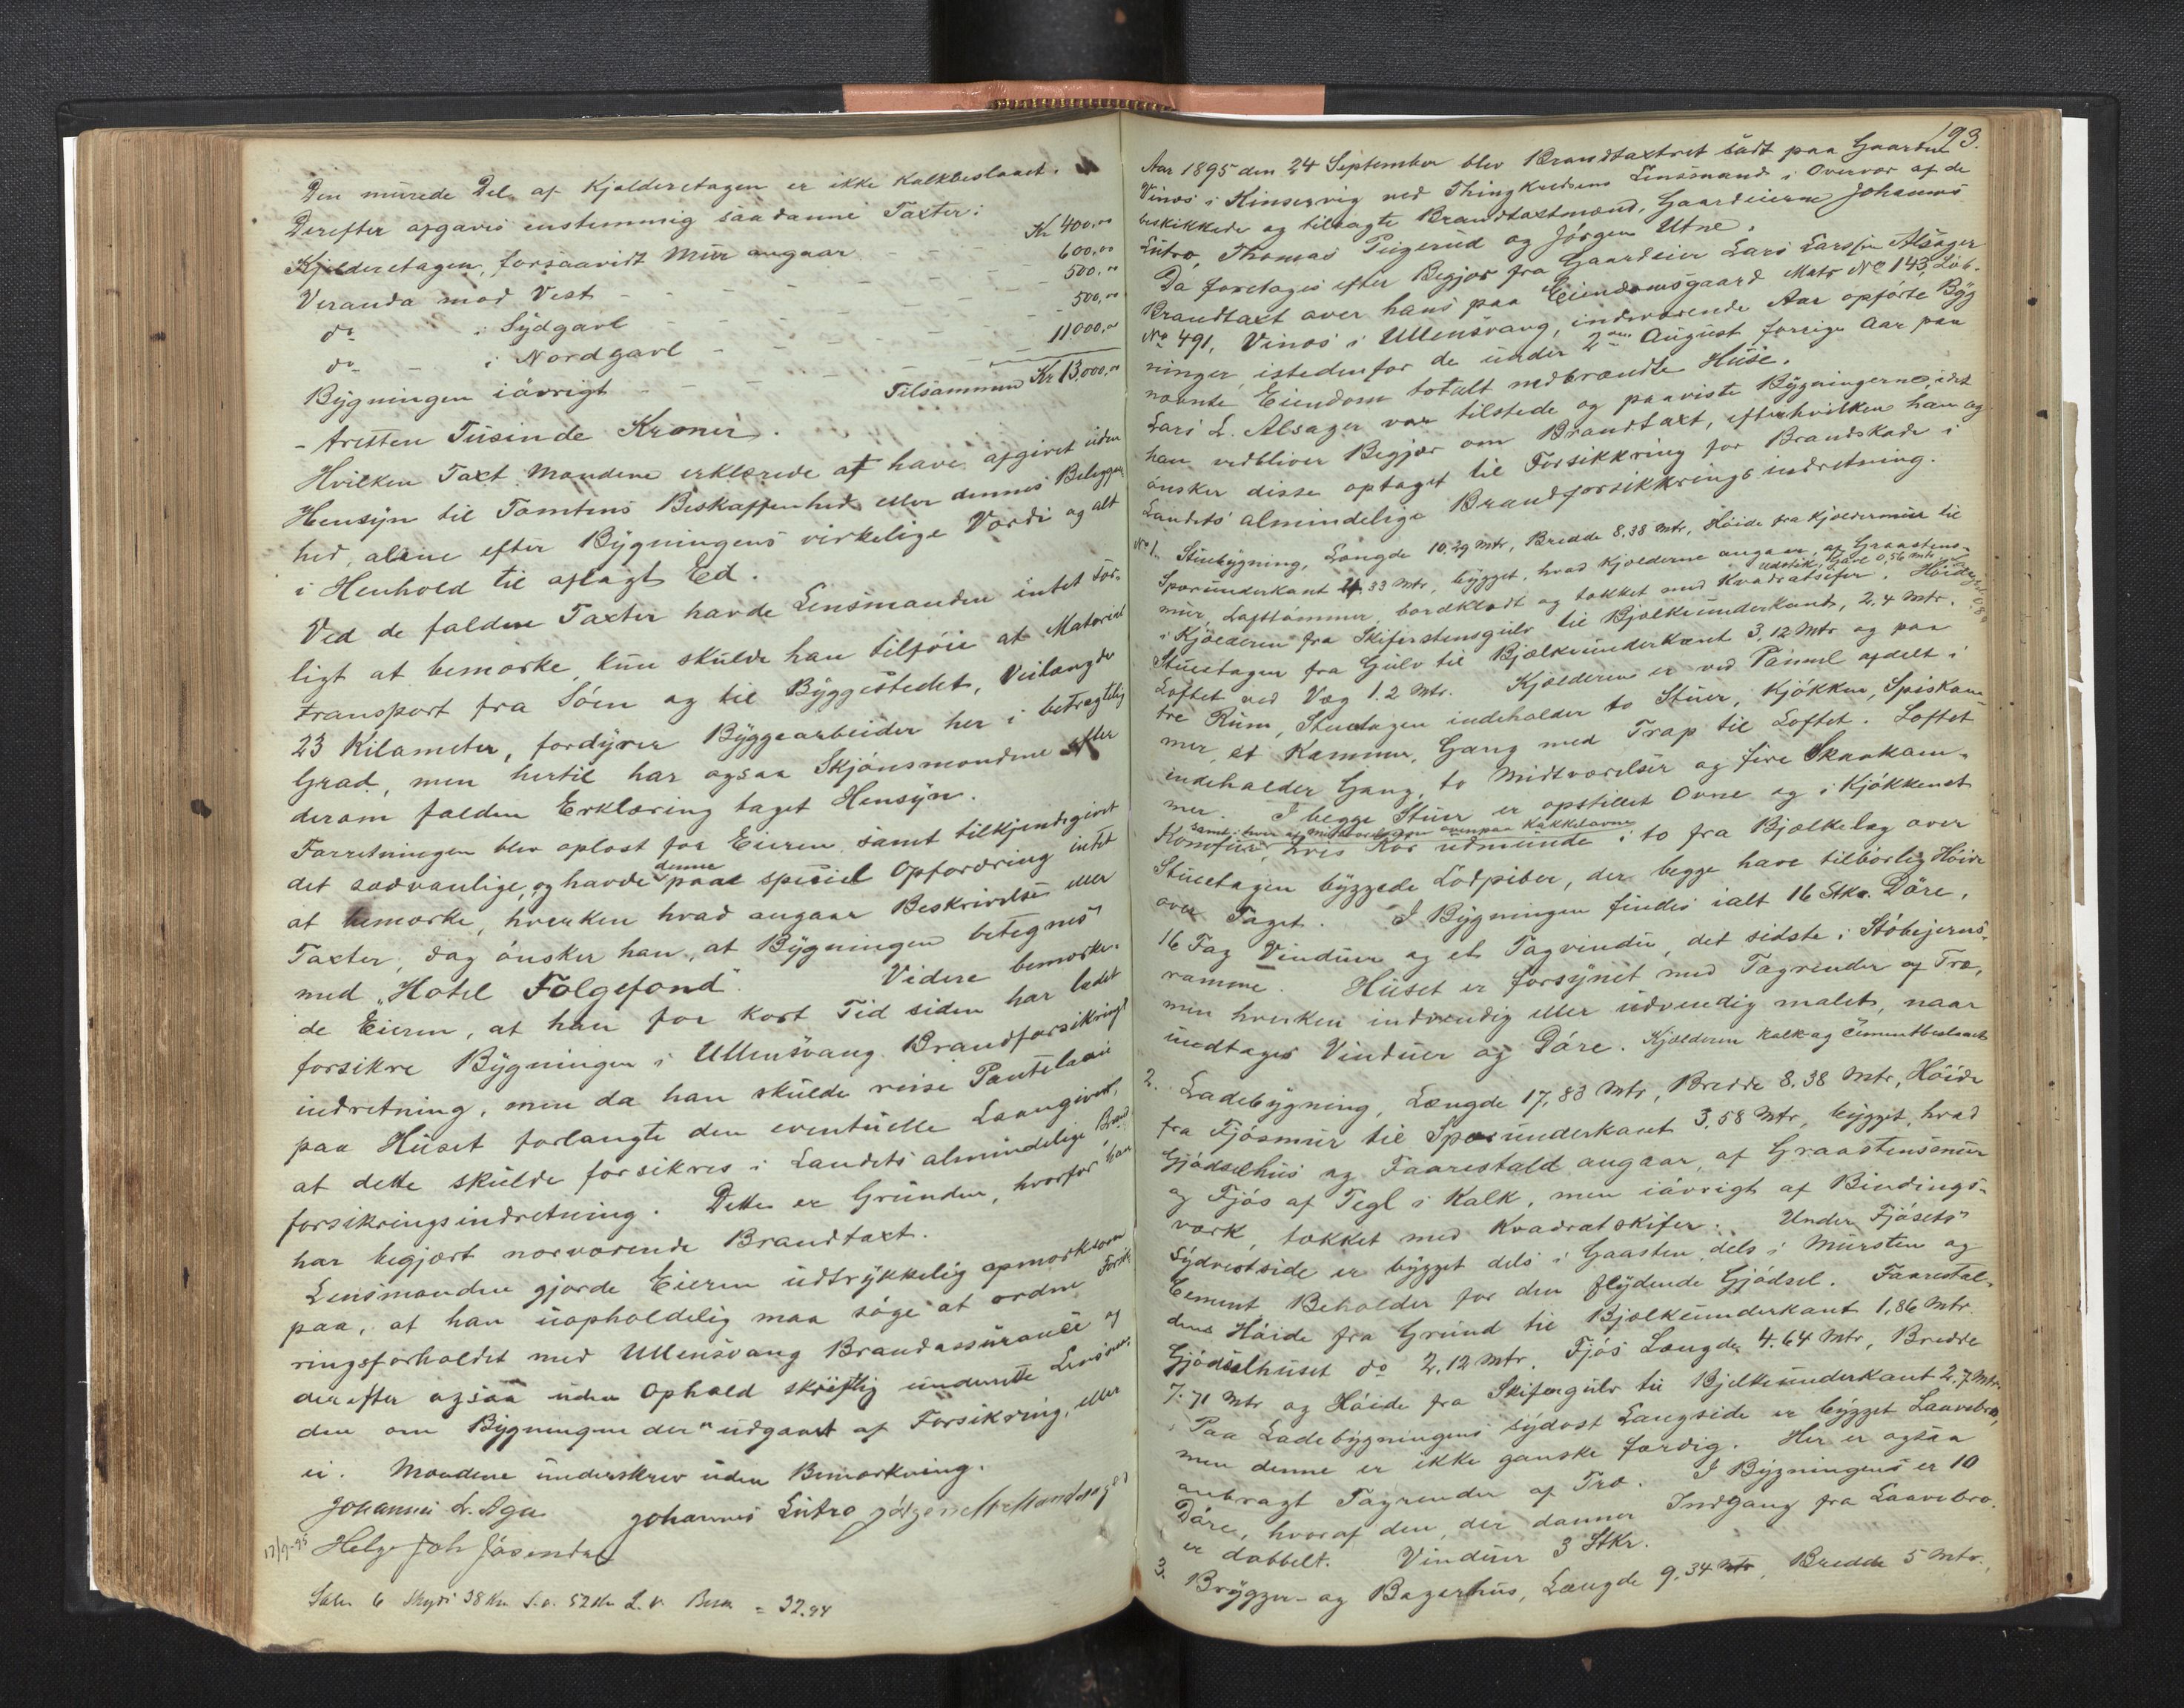 Den murede Del af Kjælderetagen er ikke kalkbeslaaet.
Derefter afgaves enstemmig saadanne Taxter:
Kjelderetagen, forsaavidt Mur angaar - - Kr 400,00
Veranda mod Vest - - - - 600,00
do - i Sydgavl - - - - 500,00
do - i Nordgavl - - - - 500,00
Bygningen iøvrigt - - - - 11000,00
Tilsammen Kr 13,000,00
- tretten Tusinde Kroner.
Hvilken Taxt Mændene erklærede at have afgivet uden
Hensyn til Tomtens Beskaffenhed eller dennes Beliggen
hed, alene efter Bygningens virkelige Værdi og alt
i Henhold til aflagt Ed.
Ved de faldne Taxter havde Lensmanden intet Vær-
ligt at bemærke, kun skulde han tilføie at Material
transport fra Søen og til Byggestedet, Veilængde
23 Kilometer, fordyrer Byggearbeider her i betragtelig
Grad, men hertil har ogsaa Skjønsmændene efter
derom falden Erklæring taget Hensyn.
Forretningen blev oplæst for Eieren samt tilkjendegivet
det sædvanlige, og havde denne paa speciel Opfordring intet
at bemærke, hverken hvad angaar Beskrivelse eller
Taxter, dog ønsker han, at Bygningen betegnes
med "Hotel Folgefond". Videre bemærke-
de Eieren, at han for kort Tid siden har ladet
forsikre Bygningen i Ullensvang Brandforsikrings
indretning, men da han skulde reise Pantelaan
paa Huset forlangte den eventuelle Laangiver,
at dette skulde forsikres i Landets almindelige Brand
forsikringsindretning. Dette er Grunden, hvorfor han
har begjært nærværende Brandtaxt.
Lensmanden gjorde Eieren udtrykkelig opmærksom
paa, at han uopholdelig maa søge at ordne Forsik
ringsforholdet med Ullensvang Brandassurance og
derefter ogsaa uden Ophold skriftlig underrette Lensman
den om Bygningen der er udgaaet af Forsikring, eller
ei. Mændene underskrev uden Bemærkning.
Johannes L. Aga Johannes Lutro
17/9-95 Helge Joh Jåsendal
= 32.94
193.
Aar 1895 den 24 September blev Brandtaxtret sadt paa Gaarden
Vines i Kinservig ved Thingkredsens Lensmand i Overvær af de
beskikkede og tiltagte Brandtaxtmænd, Gaardeierne Johannes
Lutro, Thomas Peigerud og Jørgen Utne.
Da foretages efter Begjær fra Gaardeier Lars Larssen Alsager
Brandtaxt over hans paa Eiendomsgaard Matr No 143, Løb-
No 491, Vines i Ullensvang, indeværende Aar opførte Byg
ninger istedenfor de under 2den August forrige Aar paa
nævnte Eiendom totalt nedbrændte Huse.
Lars L. Alsager var tilstede og paaviste Bygningerne, idet
han vedbliver Begjær om Brandtaxt, efterhvilken han og
ønsker disse optaget til Forsikkring for Brandskade i
Landets almindelige Brandforsikkrings indretning.
No 1. Stuebygning, Længde 10,29 Mtr, Bredde 8,38 Mtr, Høide fra Kjældermur til
Sparunderkant 4,33 Mtr, bygget, hvad Kjælderne angaar, af Graastens-
mur, Lafttømmer, bordklædt og tækket med Kvadratskifer. Udstik, Gavl 0,56 Mtr Høide
i Kjælderen fra Skiferstensgulv til Bjælkeunderkant, 2,4 Mtr.
Stueetagen fra Gulv til Bjælkeunderkant 3,12 Mtr og paa
Loftet ved Væg 1.2 Mtr. Kjælderen er ved Pannel afdelt i
tre Rum, Stuetagen indeholder to Stuer, Kjøkken, Spiskam-
mer, et Kammer, Gang med Trap til Loftet. Loftet
indeholder Gang, to Midtværelser og fire Skrakam-
mer. I begge Stuer er opstillet Ovne og i Kjøkkenet
Komfur, samt i hver af Midtværelserne ovenpaa Kakkelovne, hvis Rør udmunde i to fra Bjælkelag over
Stuetagen byggede Lødpiber, der begge have tilbørlig Høide
over Taget. I Bygningen findes ialt 16 Stkr. Døre,
16 Fag Vinduer og et Tagvindu, det sidste i Støbejerns-
ramme. Huset er forsynet med Tagrender af Træ,
men hverken indvendig eller udvendig malet, naar
undtages Vinduer og Døre. Kjælderen kalk og Cementbeslaaet
2. Ladebygning, Længde 17,83 Mtr, Bredde 8,38 Mtr, Høide
fra Fjøsmur til Sparunderkant 3,58 Mtr, bygget, hvad
Gjødselhus og Faarestald angaar, af Graastensmur
og Fjøs af Tegl i Kalk, men iøvrigt af Bindings-
værk, tækket med Kvadratskifer. Under Fjøsets
Sydvestside er bygget dels i Gaasten dels i Mursten og
Cement Beholder for den flydende Gjødsel. Faarestal-
dens Høide fra Grund til Bjælkeunderkant 1,86 Mtr.
Gjødselhuset do 2,12 Mtr. Fjøs Længde 4,64 Mtr, Bredde
7,71 Mtr og Høide fra Skifergulv til Bjelkeunderkant 2,7 Mtr.
Paa Ladebygningens sydost Langside er bygget Laavebro,
men denne er ikke ganske færdig. Her er ogsaa
anbragt Tagrender af Træ. I Bygningens er 10
Døre, hvoraf den, der danner Indgang fra Laavebro.
er dobbelt. Vinduer 3 Stkr.
3. Brygger- og Bagerhus, Længde 9,34 Mtr, Bredde 5 Mtr,